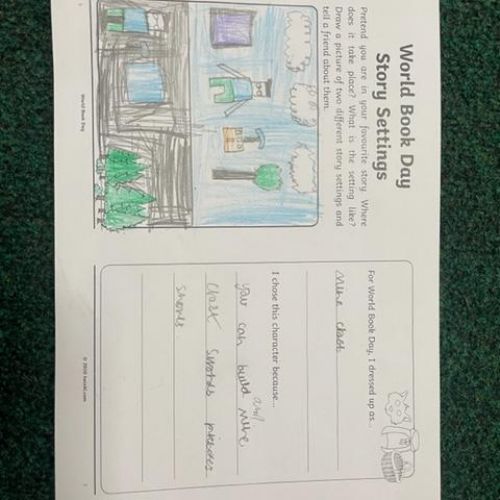 World Book Day
Story Settings
Pretend you are in your favourite story. Where
does it take place? What is the setting like?
Draw a picture of two different story settings and
tell a friend about them.
World Book Day
For World Book Day, I dressed up as...
mine craft
I chose this character because...
you can build mine
and
craft swords